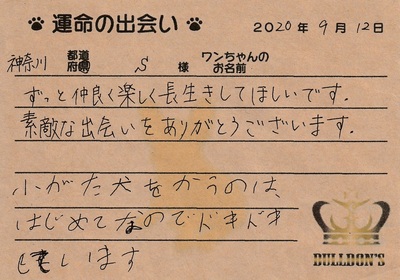 運命の出会い
2020年9月12日
神奈川 都道府県 S 様 ワンちゃんのお名前
ずっと仲良く楽しく長生きしてほしいです。
素敵な出会いをありがとうございます。
小がた犬をかうのは、
はじめてなのでドキドキ
しています
BULLDON'S